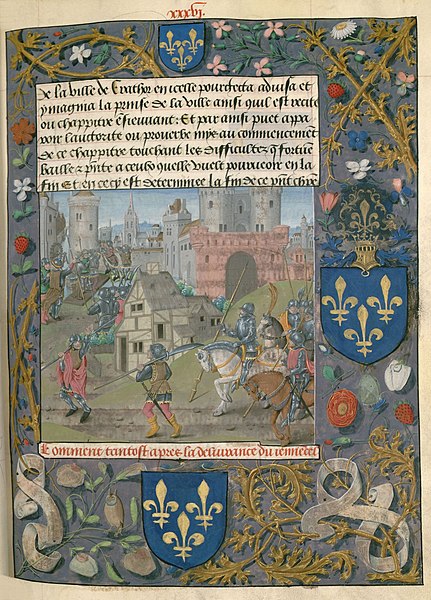 xxxvi
de la ville de en celle pourcheta advisa et
ymagina la prinse de la ville ainsi quil est
ou chappitre Et par ainsi puet appa
roir lauctorite ou proverbe mys au commencement
de ce chappitre touchant les difficultez q fortune
baille a ceulx quelle veult pourveoir en la
fin Et en cecy est determinee la fin de ce pnt chap
Comment tantost apres la delivrance du